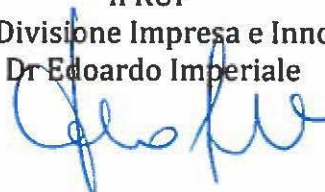 Il RUP
Divisione Impresa e Inno
Dr Edoardo Imperiale